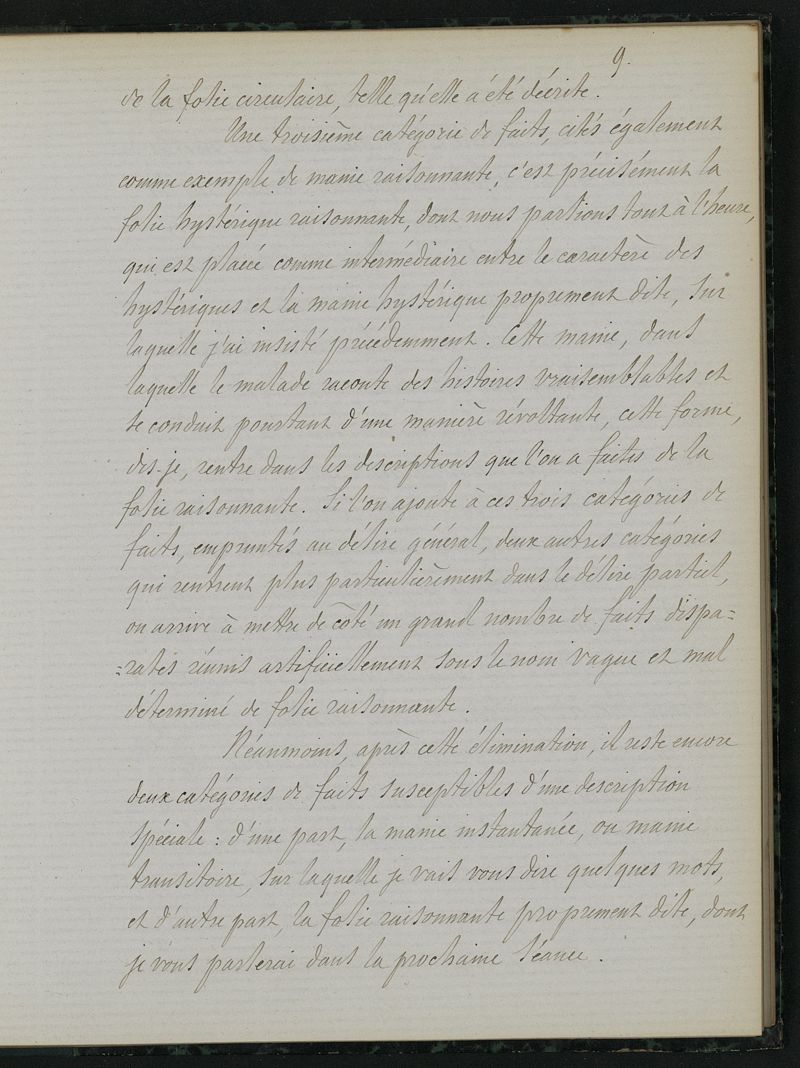 9.
de la folie circulaire, telle qu'elle a été décrite.
Une troisième catégorie de faits, cités également
comme exemple de manie raisonnante, c'est précisément la
folie hystérique raisonnante, dont nous parlions tout à l'heure,
qui est placée comme intermédiaire entre le caractère des
hystériques et la manie hystérique proprement dite, sur
laquelle j'ai insisté précédemment. Cette manie, dans
laquelle le malade raconte des histoires vraisemblables et
se conduit pourtant d'une manière révoltante, cette forme,
dis-je, rentre dans les descriptions que l'on a faites de la
folie raisonnante. Si l'on ajoute à ces trois catégories de
faits, empruntés au délire général, deux autres catégories
qui rentrent plus particulièrement dans le délire partiel,
on arrive à mettre de côté un grand nombre de faits dispa=
=rates réunis artificiellement sous le nom vague et mal
déterminé de folie raisonnante.
Néanmoins, après cette élimination, il reste encore
deux catégories de faits susceptibles d'une description
spéciale : d'une part, la manie instantanée, ou manie
transitoire, sur laquelle je vais vous dire quelques mots,
et d'autre part, la folie raisonnante proprement dite, dont
je vous parlerai dans la prochaine séance.